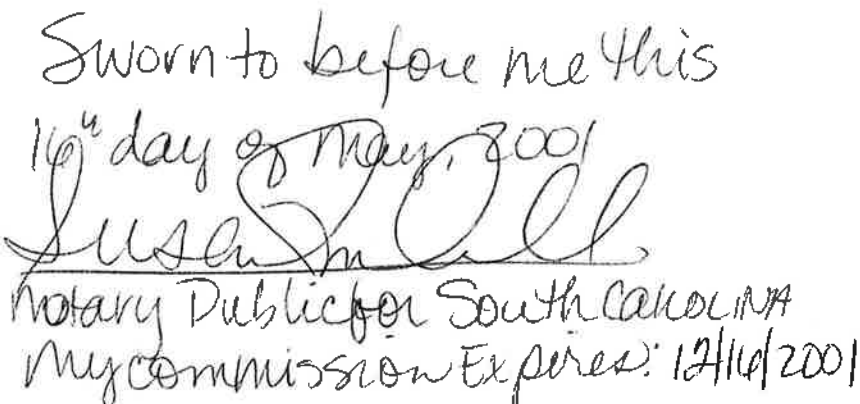 Sworn to before me this
16" day of May, 2001
Susan
Notary Public for South Carolina
My commission Expires: 12/16/2001